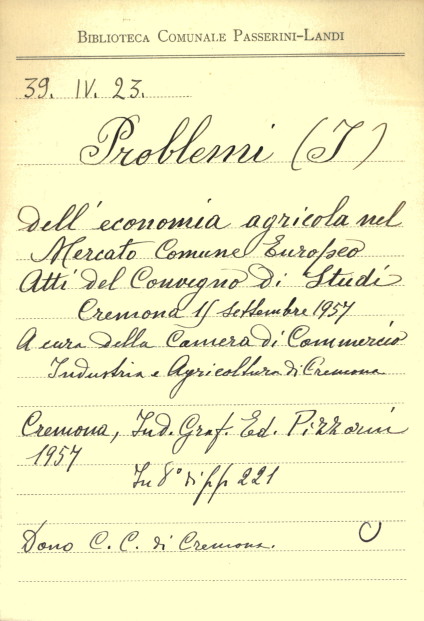 BIBLIOTECA COMUNALE PASSERINI-LANDI
39. IV. 23.
Problemi (I)
dell'economia agricola nel
Mercato Comune Europeo
Atti del Convegno di Studi
Cremona 15 settembre 1957
A cura della Camera di Commercio
Industria e Agricoltura di Cremona
Cremona, Ind. Graf. Ed. Pizzorni
1957
In 8° di pp 221
Dono C. C. di Cremona.